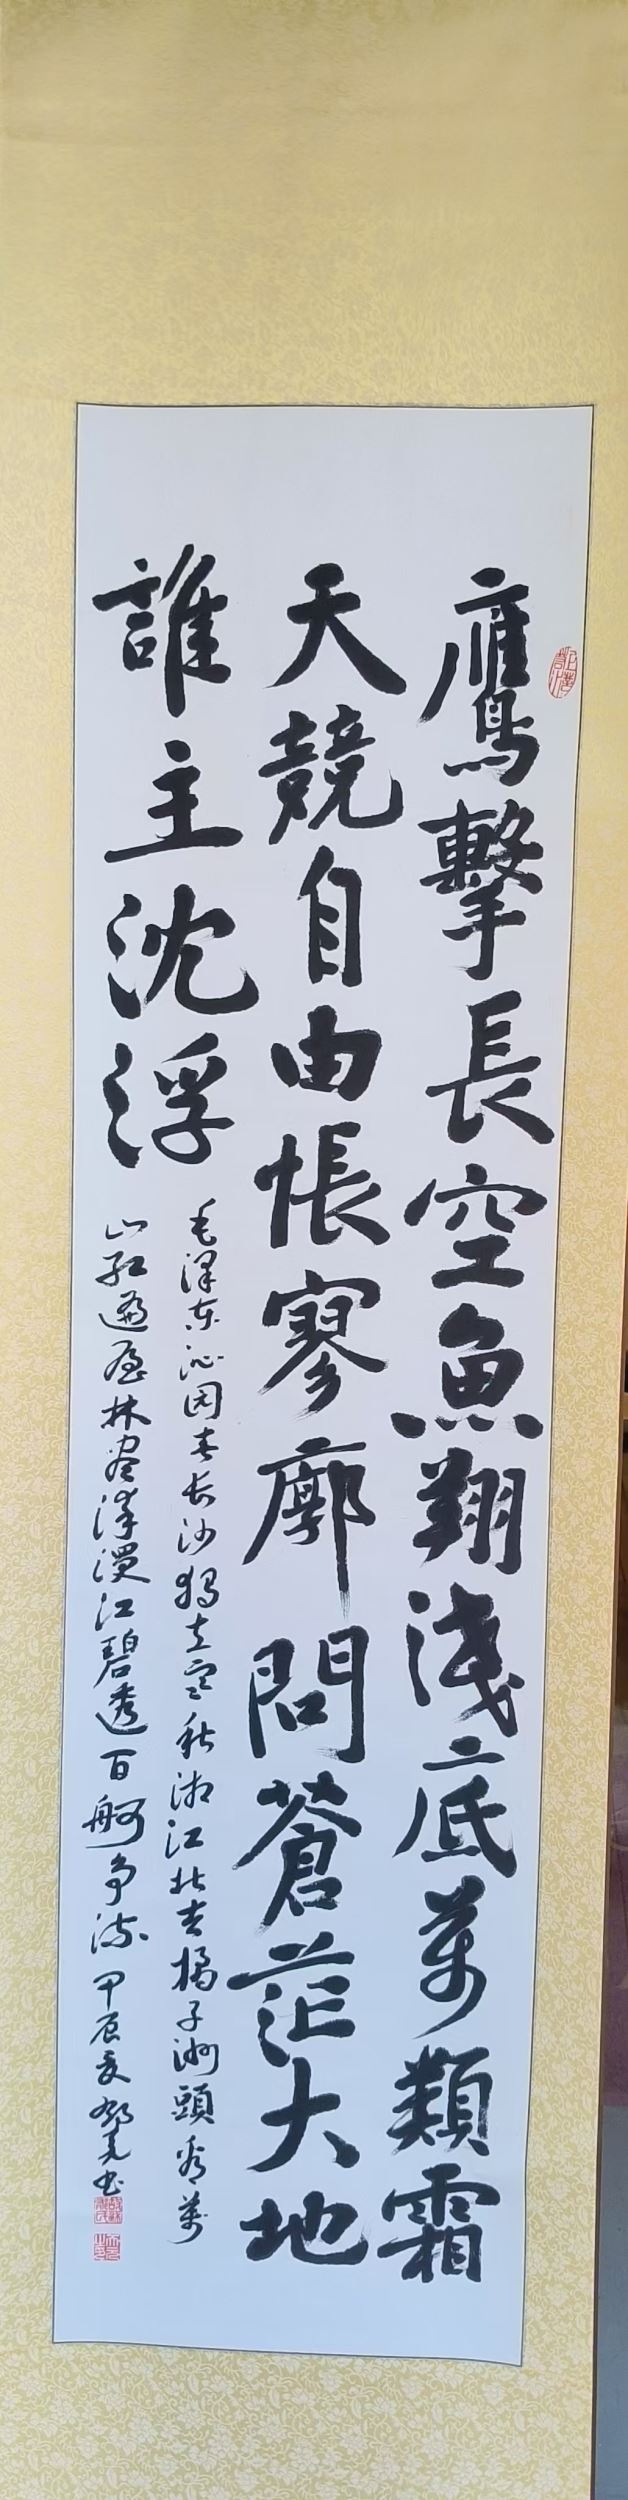 鷹擊長空魚翔淺底萬類霜
天競自由悵寥廓問蒼茫大地
誰主沈浮
毛澤东沁园春长沙独立寒秋湘江北去橘子洲頭看萬
山红遍层林尽染漫江碧透百舸争流甲辰夏